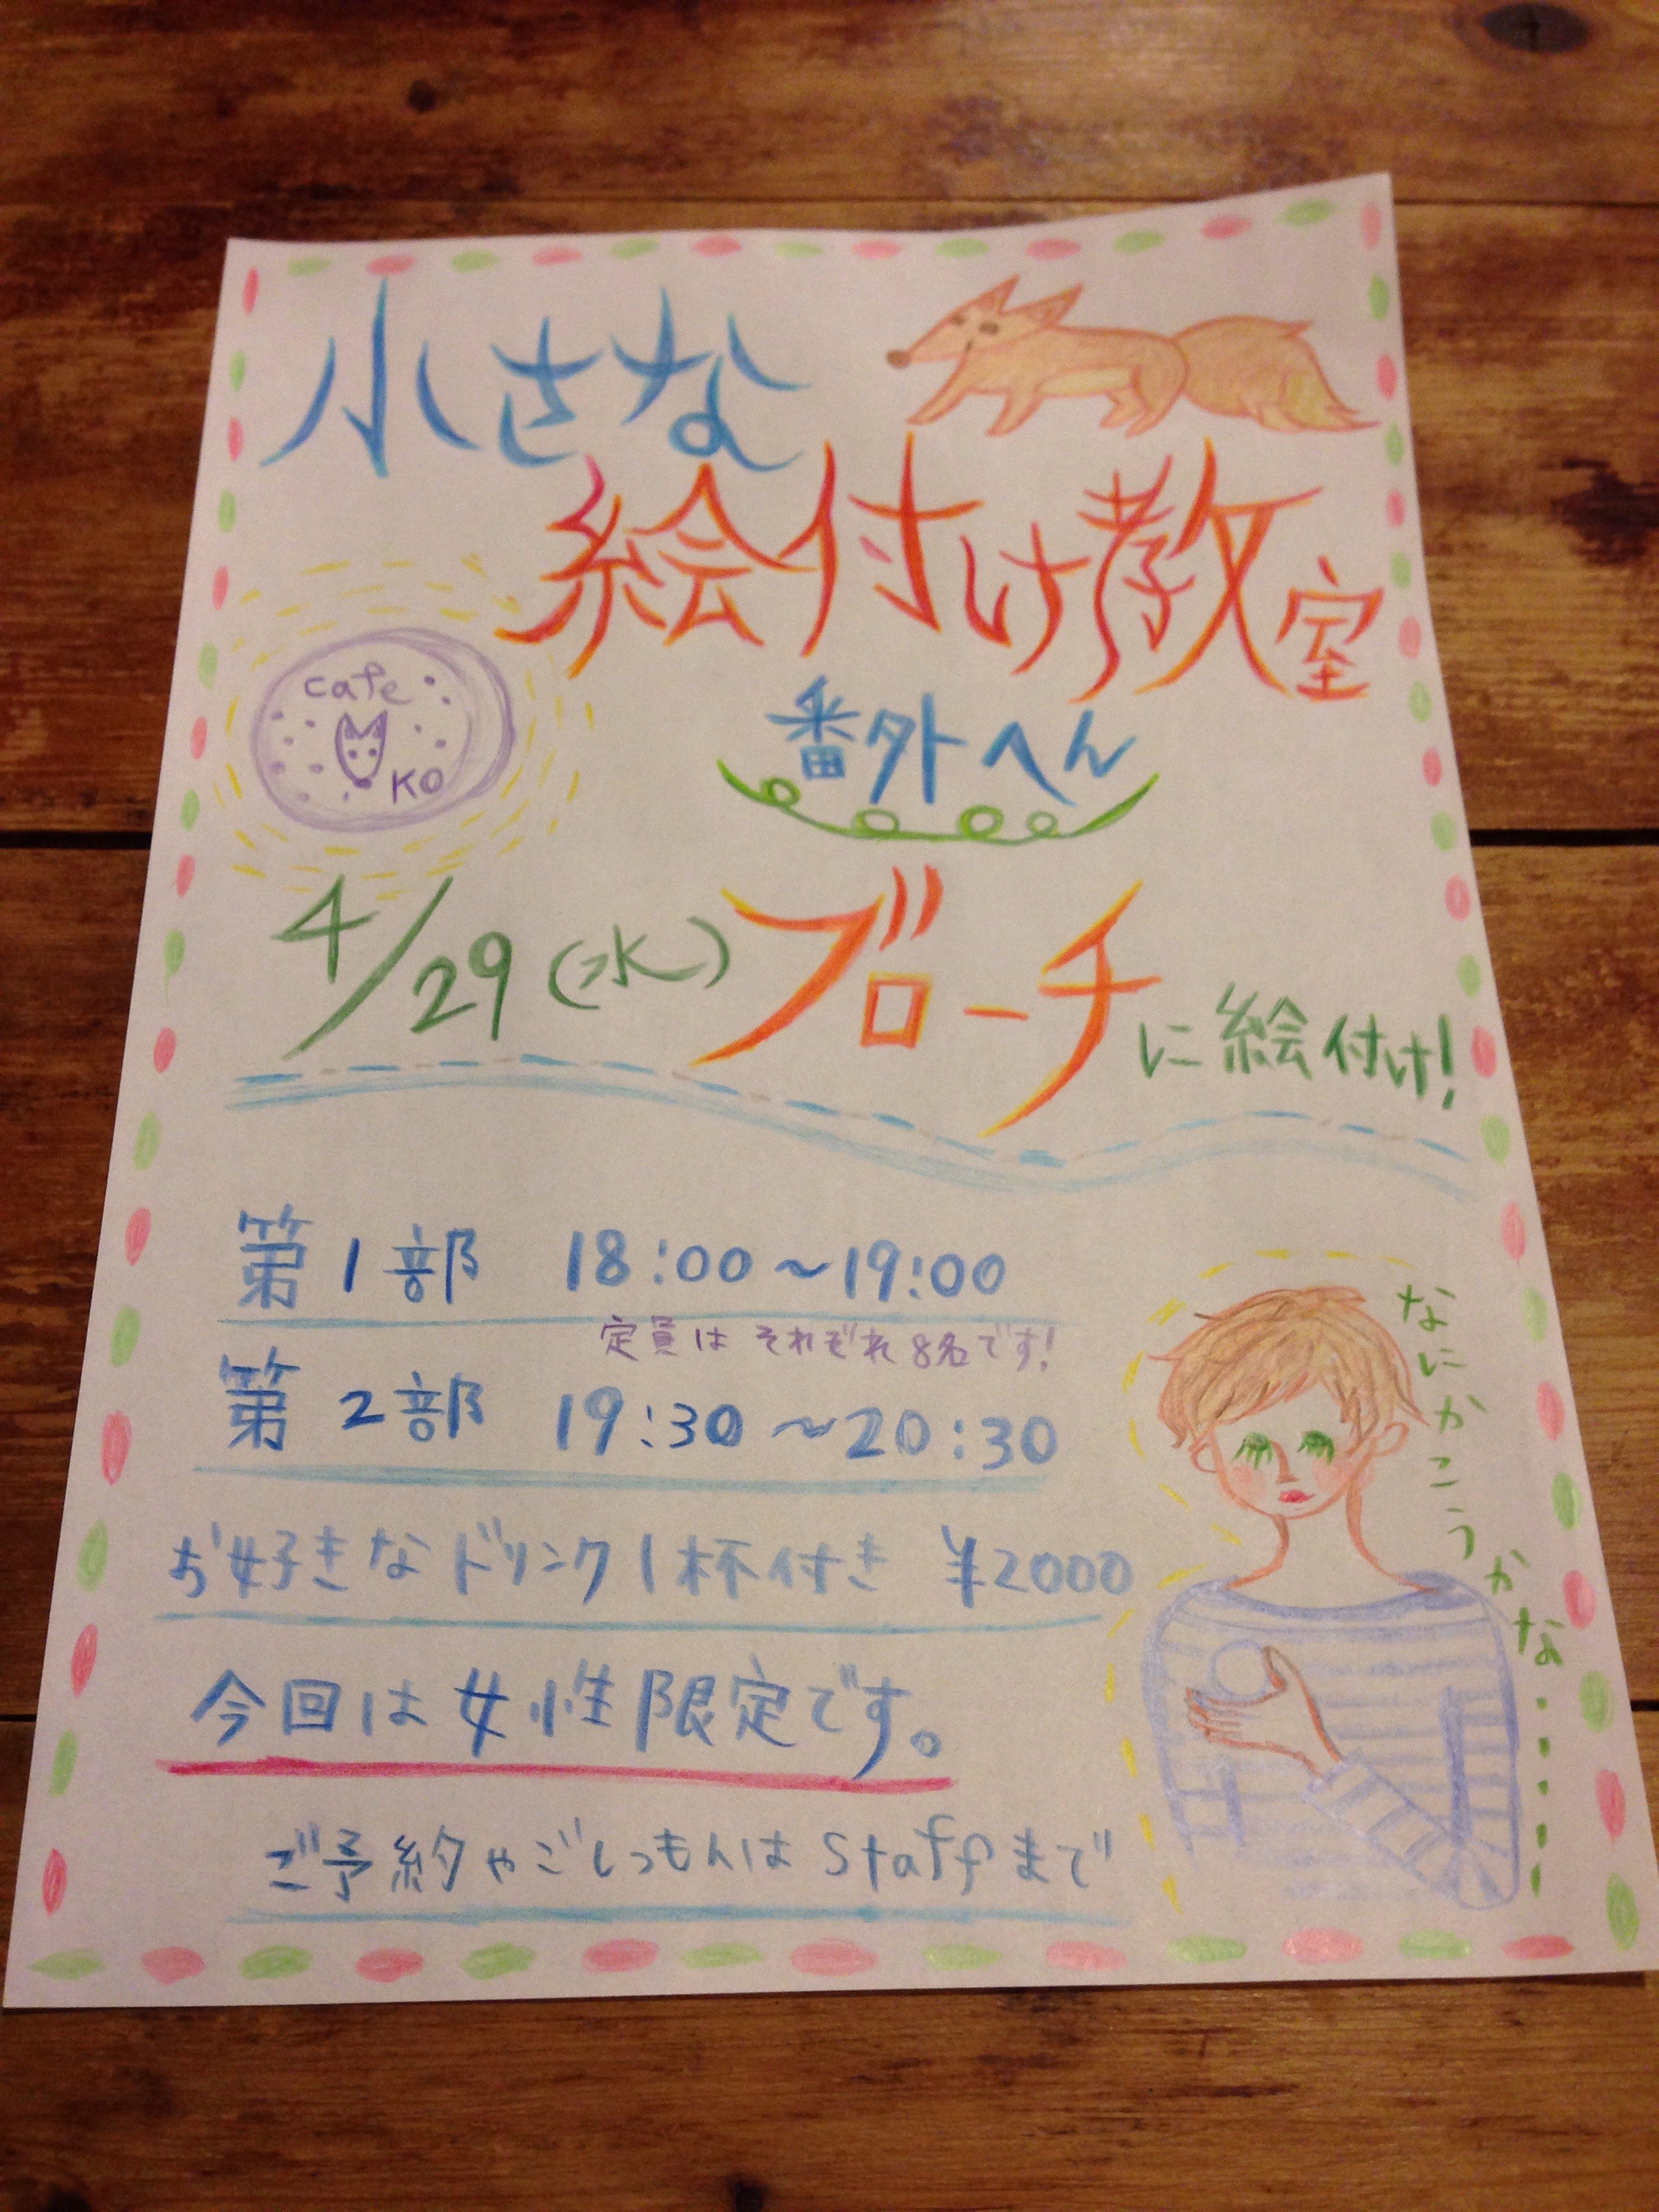 小さな
絵付け教室
cafe
KO
番外へん
4/29(水) ブローチに絵付け!
第1部 18:00~19:00
定員はそれぞれ8名です!
第2部 19:30~20:30
お好きなドリンク1杯付き ¥2000
今回は女性限定です。
ご予約やごしつもんはstaffまで
なにかこうかな……